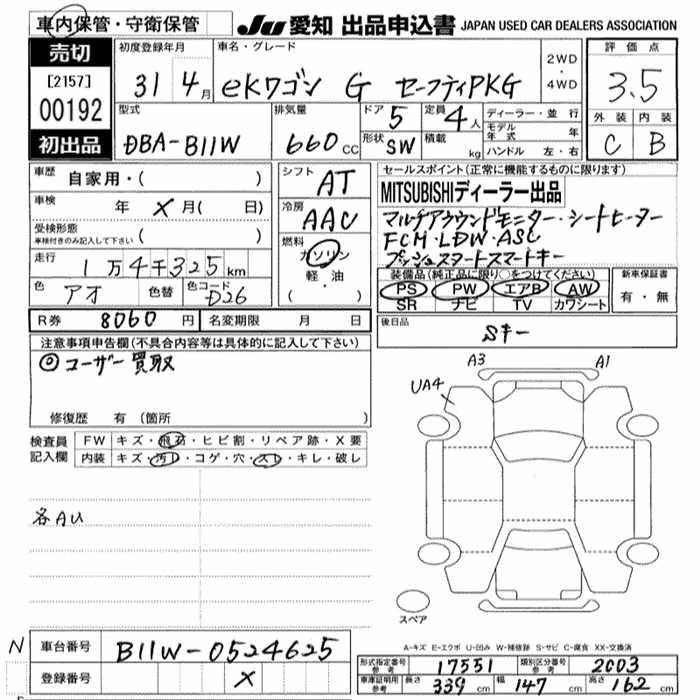 車内保管・守衛保管
JU 愛知 出品申込書 JAPAN USED CAR DEALERS ASSOCIATION
売切
[2157]
00192
初出品
初度登録年月
31 4月
車名・グレード
eKワゴン G セーフティPKG
2WD
・
4WD
評価点
3.5
外装 内装
C B
型式
DBA-B11W
排気量
660cc
ドア 5
形状 SW
定員 4人
積載 kg
ディーラー・並行
モデル年式 年
ハンドル 左・右
車歴 自家用・( )
車検 年 X月( 日)
受検形態
車検付きのみ記入して下さい ( )
走行 1万4千325km
色 アオ 色替 色コード D26
シフト AT
冷房 AAC
燃料
ガソリン
軽・油
・( )
セールスポイント(正常に機能するものに限ります)
MITSUBISHIディーラー出品
マルチアラウンドモニター・シートヒーター
FCM・LDW・ASC
プッシュスタートスマートキー
装備品(純正品に限り○をつけてください)
PS PW エアB AW
SR ナビ TV カワシート
新車保証書
有・無
R券 8060円 名変期限 月 日
後日品
Sキー
注意事項申告欄(不具合内容等は具体的に記入して下さい)
◎ユーザー買取
修復歴 有(箇所 )
検査員記入欄
FW キズ・飛石・ヒビ割・リペア跡・X要
内装 キズ・汚れ・コゲ・穴・スレ・キレ・破レ
各AU
A3 A1
UA4
スペア
A-キズ E-エクボ U-凹み W-補修跡 S-サビ C-腐食 XX-交換済
N
車台番号 B11W-0524625
登録番号 X
形式指定番号参考 17551 類別区分番号参考 2003
車庫証明用参考 長さ 339cm 幅 147cm 高さ 162cm